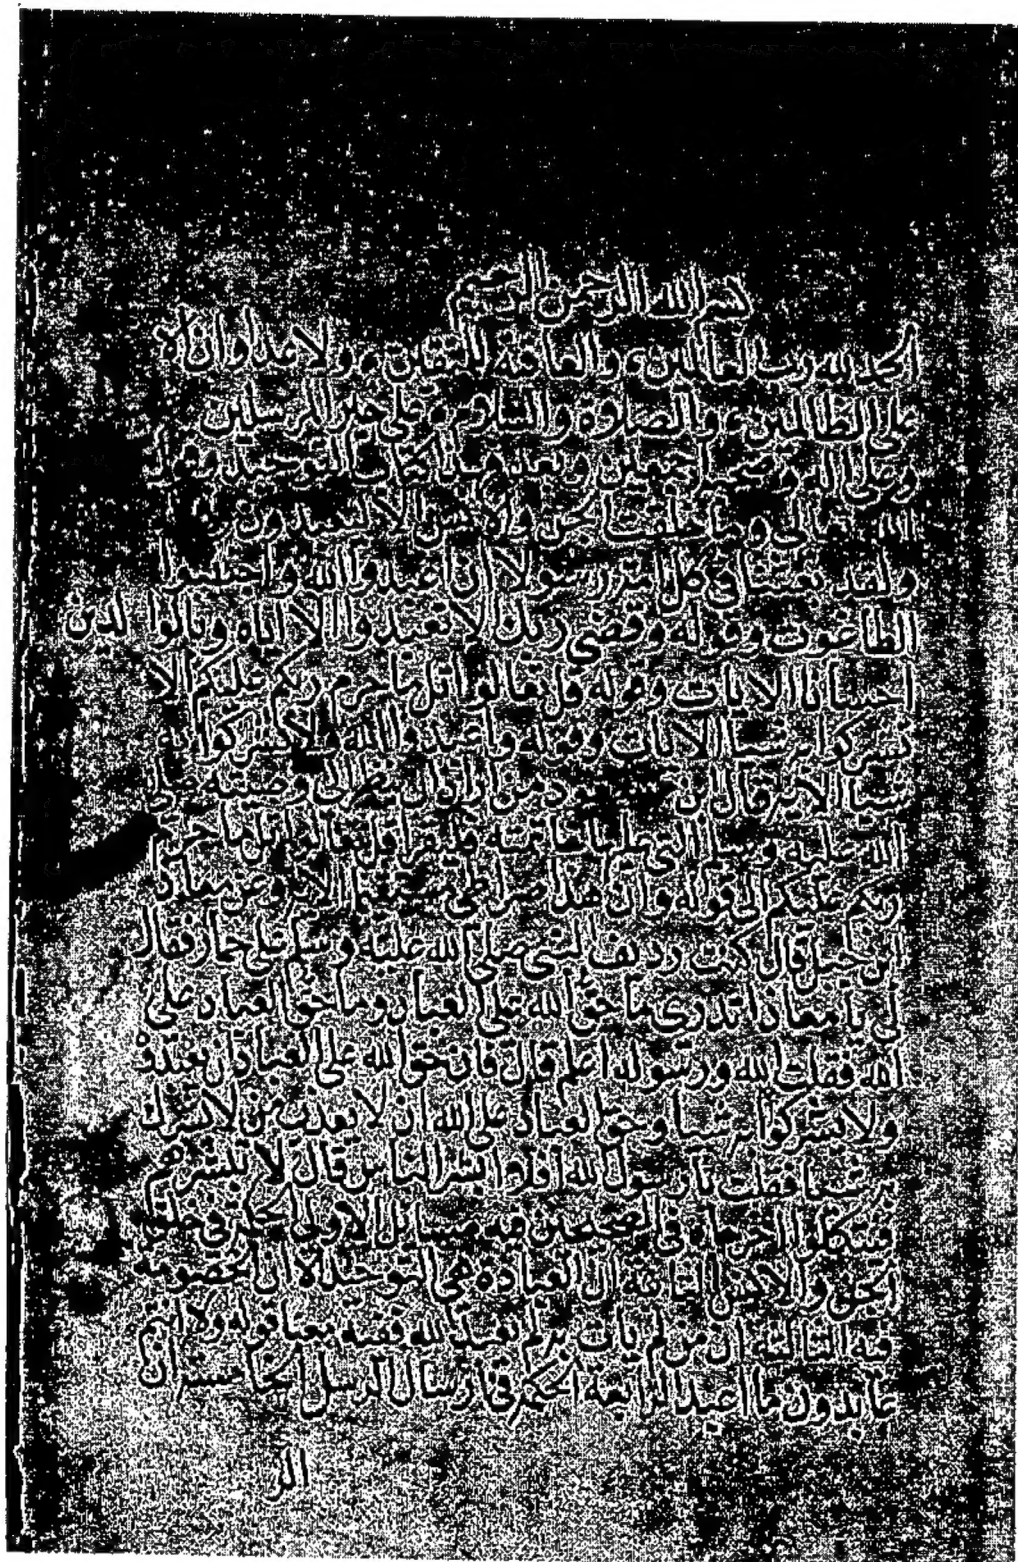 بسم الله الرحمن الرحيم
الحمد لله رب العالمين، والعاقبه للمتقين، ولا عدوان الا
على الظالمين، والصلاوة والسلام، على خير المرسلين
وعلى اله وصحبه اجمعين وبعد هذا كتاب التوحيد وقول
الله تعالى وما خلقت الجن والانس الا ليعبدون
ولقد بعثنا في كل امة رسولا ان اعبدوا الله واجتنبوا
الطاغوت وقوله وقضى ربك لا تعبدوا الا اياه وبالوالدين
احسانا الايات وقوله قل تعالوا اتل ما حرم ربكم عليكم الا
تشركوا به شيا الايات وقوله واعبدوا الله ولا تشركوا به
شيا الاية قال ابن مسعود من اراد ان ينظر الى وصية
الله عليه وسلم التي عليها خاتمته فليقرا قل تعالوا اتل ما حرم
ربكم عليكم الى قوله وان هذا صراطي مستقيما الاية وعن معاذ
ابن جبل قال كنت رديف النبي صلى الله عليه وسلم على حمار فقال
لي يا معاذ اتدري ما حق الله على العباد وما حق العباد على
الله فقلت الله ورسوله اعلم قال فان حق الله على العباد ان يعبدوه
ولا يشركوا به شيا وحق العباد على الله ان لا يعذب من لا يشرك
به شيا فقلت يا رسول الله افلا ابشر الناس قال لا تبشرهم
فيتكلوا اخرجاه في الصحيحين فيه مسايل الاولى الحكمة في خلق
الجن والانس الثانية ان العبادة هي التوحيد لان الخصومة
فيه الثالثة ان من لم يات به لم يعبد الله ففيه معنا قوله ولا انتم
عابدون ما اعبد الرابعة الحكمة في ارسال الرسل الخامسة ان
الر